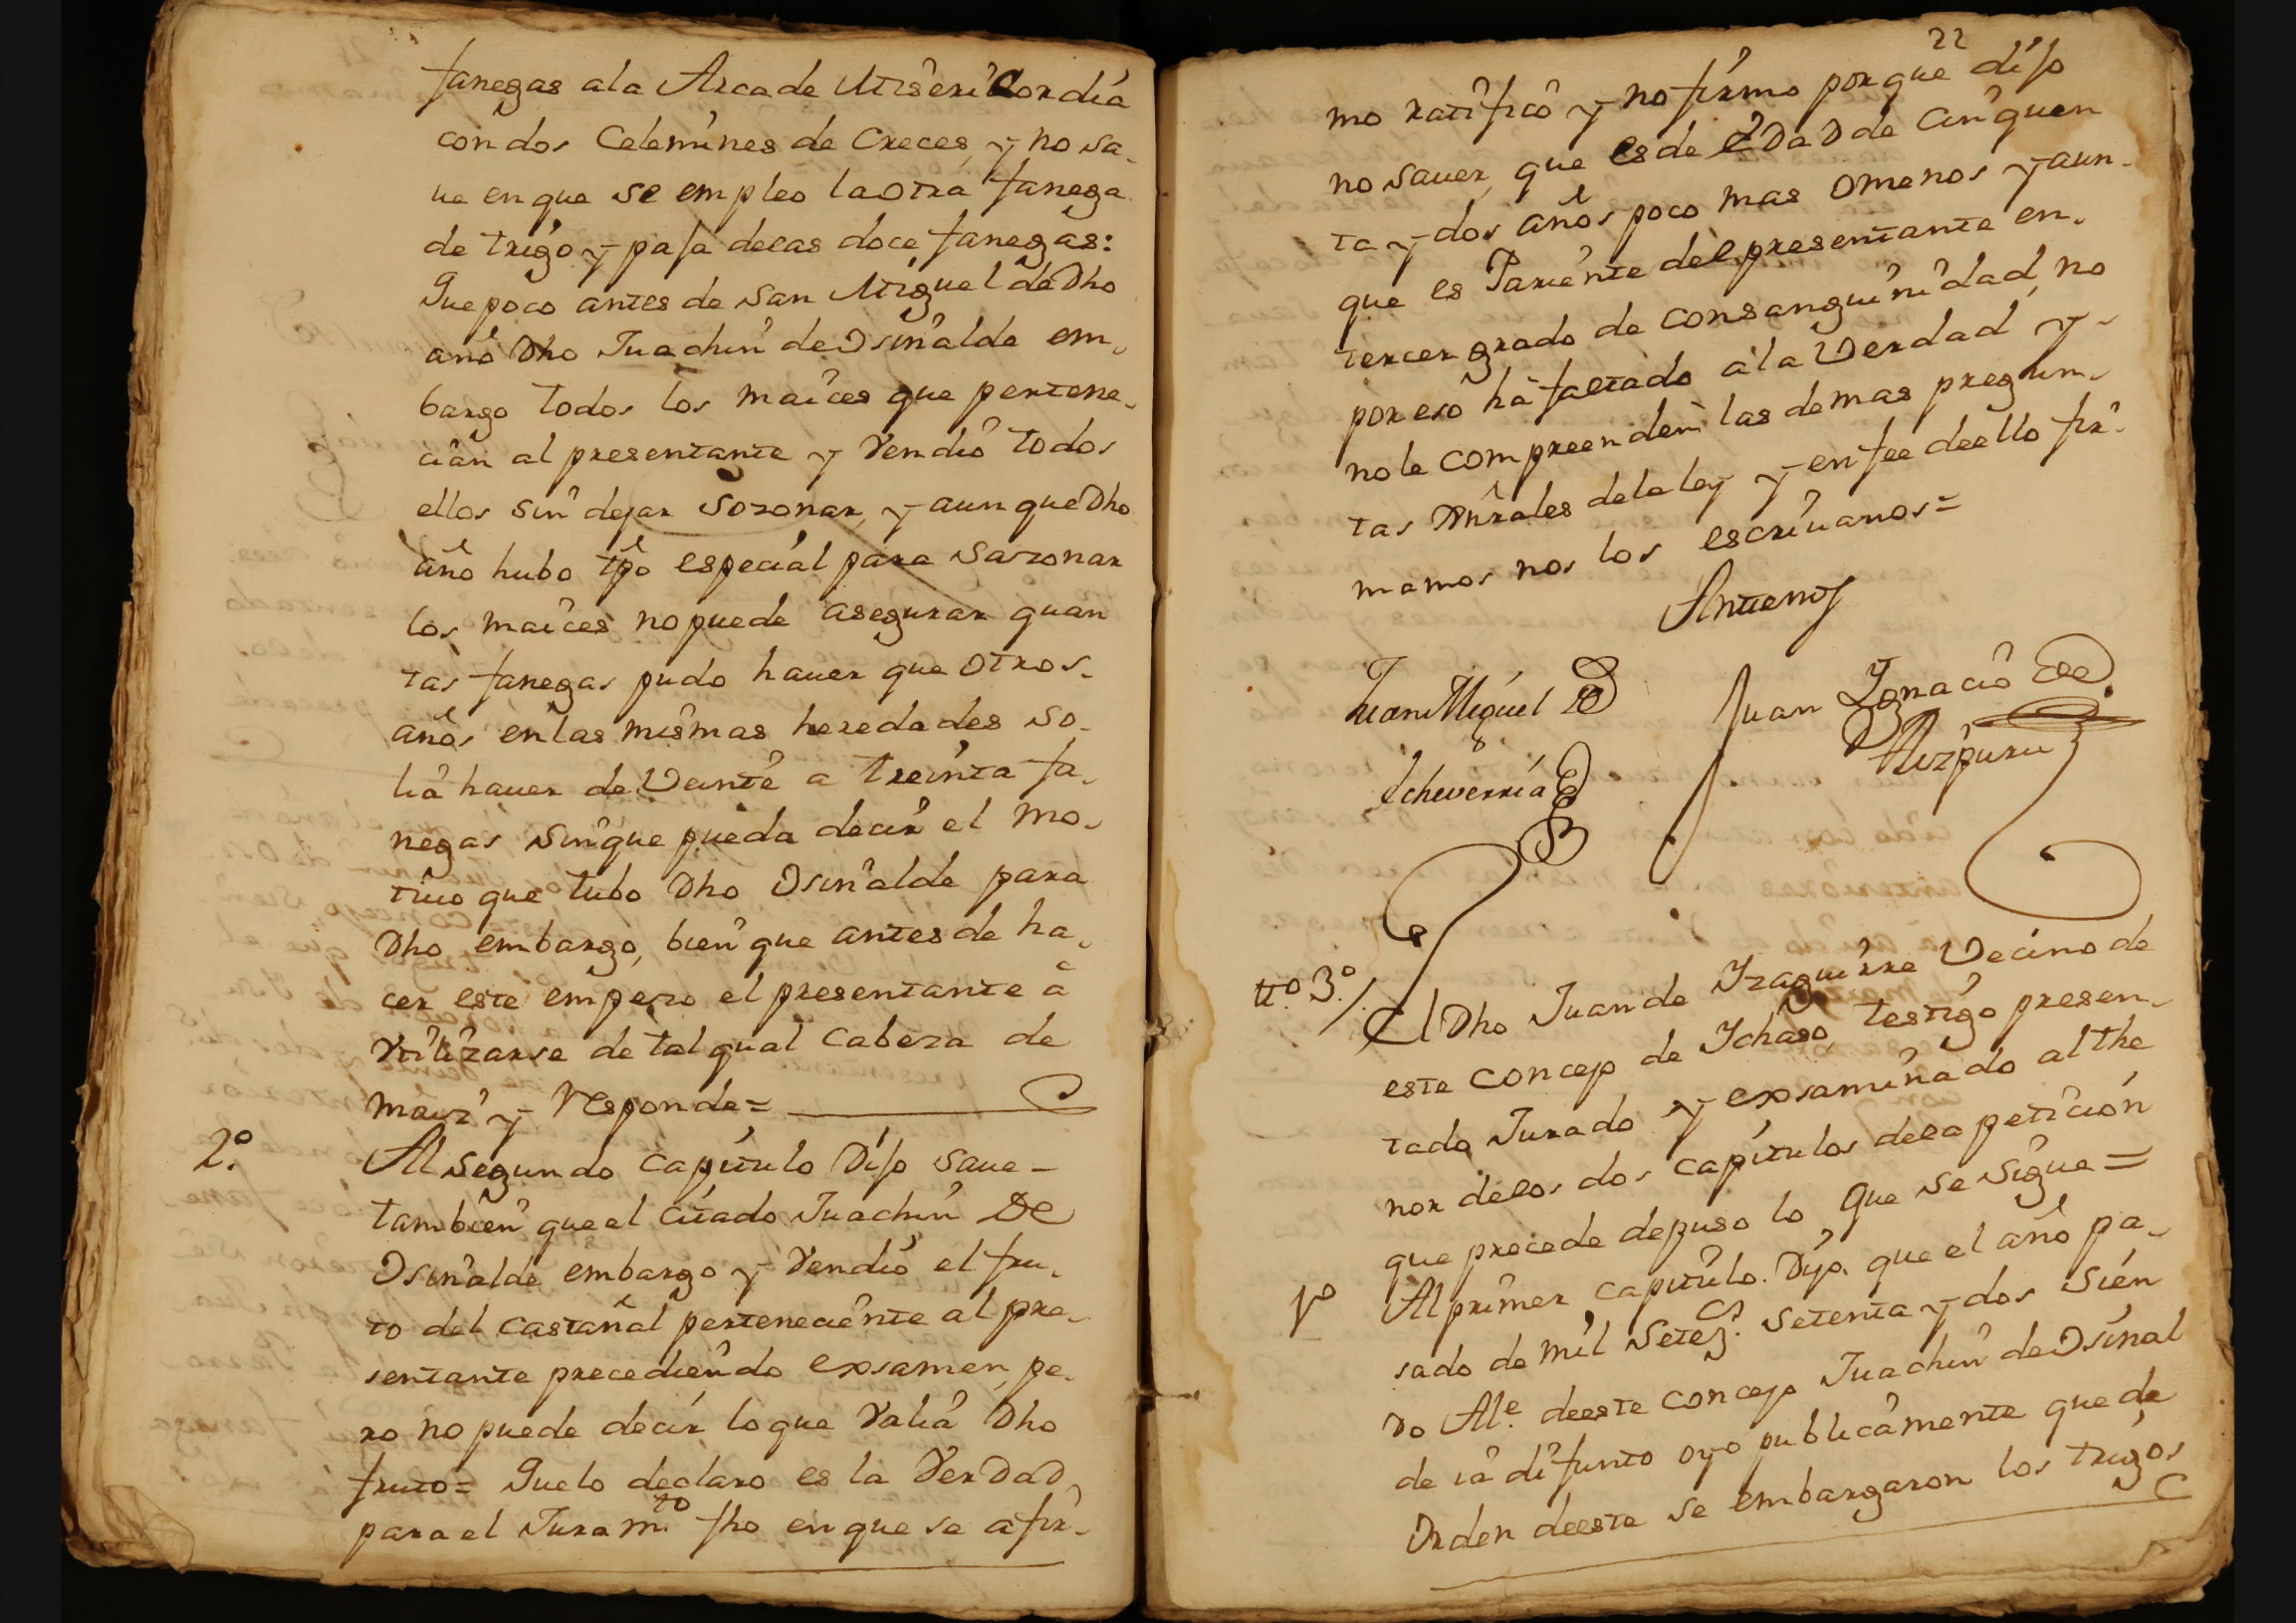 fanegas ala Arca de Misericordia
con dos Celemines de Creces, y no sa-
ue en que se empleo la otra fanega
de trigo y pasa delas doce fanegas:
Que poco antes de San Miguel de Dho
año Dho Juachin de Osinalde em-
bargo todos los maices que pertene-
cian al presentante y Vendió todos
ellos sin dejar sozonar, y aunque Dho
año hubo tpo especial para sazonar
los maices no puede asegurar quan
tas fanegas pudo hauer que otros-
años en las mismas heredades so-
liá hauer de Veinte a treinta fa-
negas sin que pueda decir el mo-
tiuo que tubo Dho Osinalde para
Dho embargo, bien que antes de ha-
cer este empezo el presentante à
Vtilizarse de tal qual Cabeza de
maiz y responde=
2.º Al segundo capitulo Dijo saue-
tambien que el citado Juachin De
Osinalde embargo y Vendió el fru-
to del castañal perteneciente al pre-
sentante precediendo exsamen, pe-
ro no puede decir lo que Valiá Dho
fruto= Que lo declaro es la VerDaD,
para el Juram.to fho en que se afir-
22
mo ratificó y no firmo porque dijo
no sauer, que es de eDaD de cinquen
ta y dos años poco mas o menos y aun-
que es Pariente del presentante en-
tercer grado de consanguinidad, no
por eso há faltado a la Verdad y-
no le compreenden las demas pregun-
tas Gnrales de la ley y en fee deello fir-
mamos nos los escriuanos=
Antemy
Juan Miguel De
Echeverria
Juan Ignacio De
Aizpuru
tt.º 3.º/. El Dho Juan de Yzaguirre Vecino de
este concejo de Ychaso, testigo presen-
tado Jurado y exsaminado al the
nor delos dos capitulos dela petición
que precede depuso lo que se sigue=
1º Al primer capitulo. Dijo que el año pa-
sado de mil setez.s setenta y dos sien
do Al.e deeste concejo Juachin de Osinal
de ia difunto oyo publicamente que de
Orden deeste se embargaron los trigos